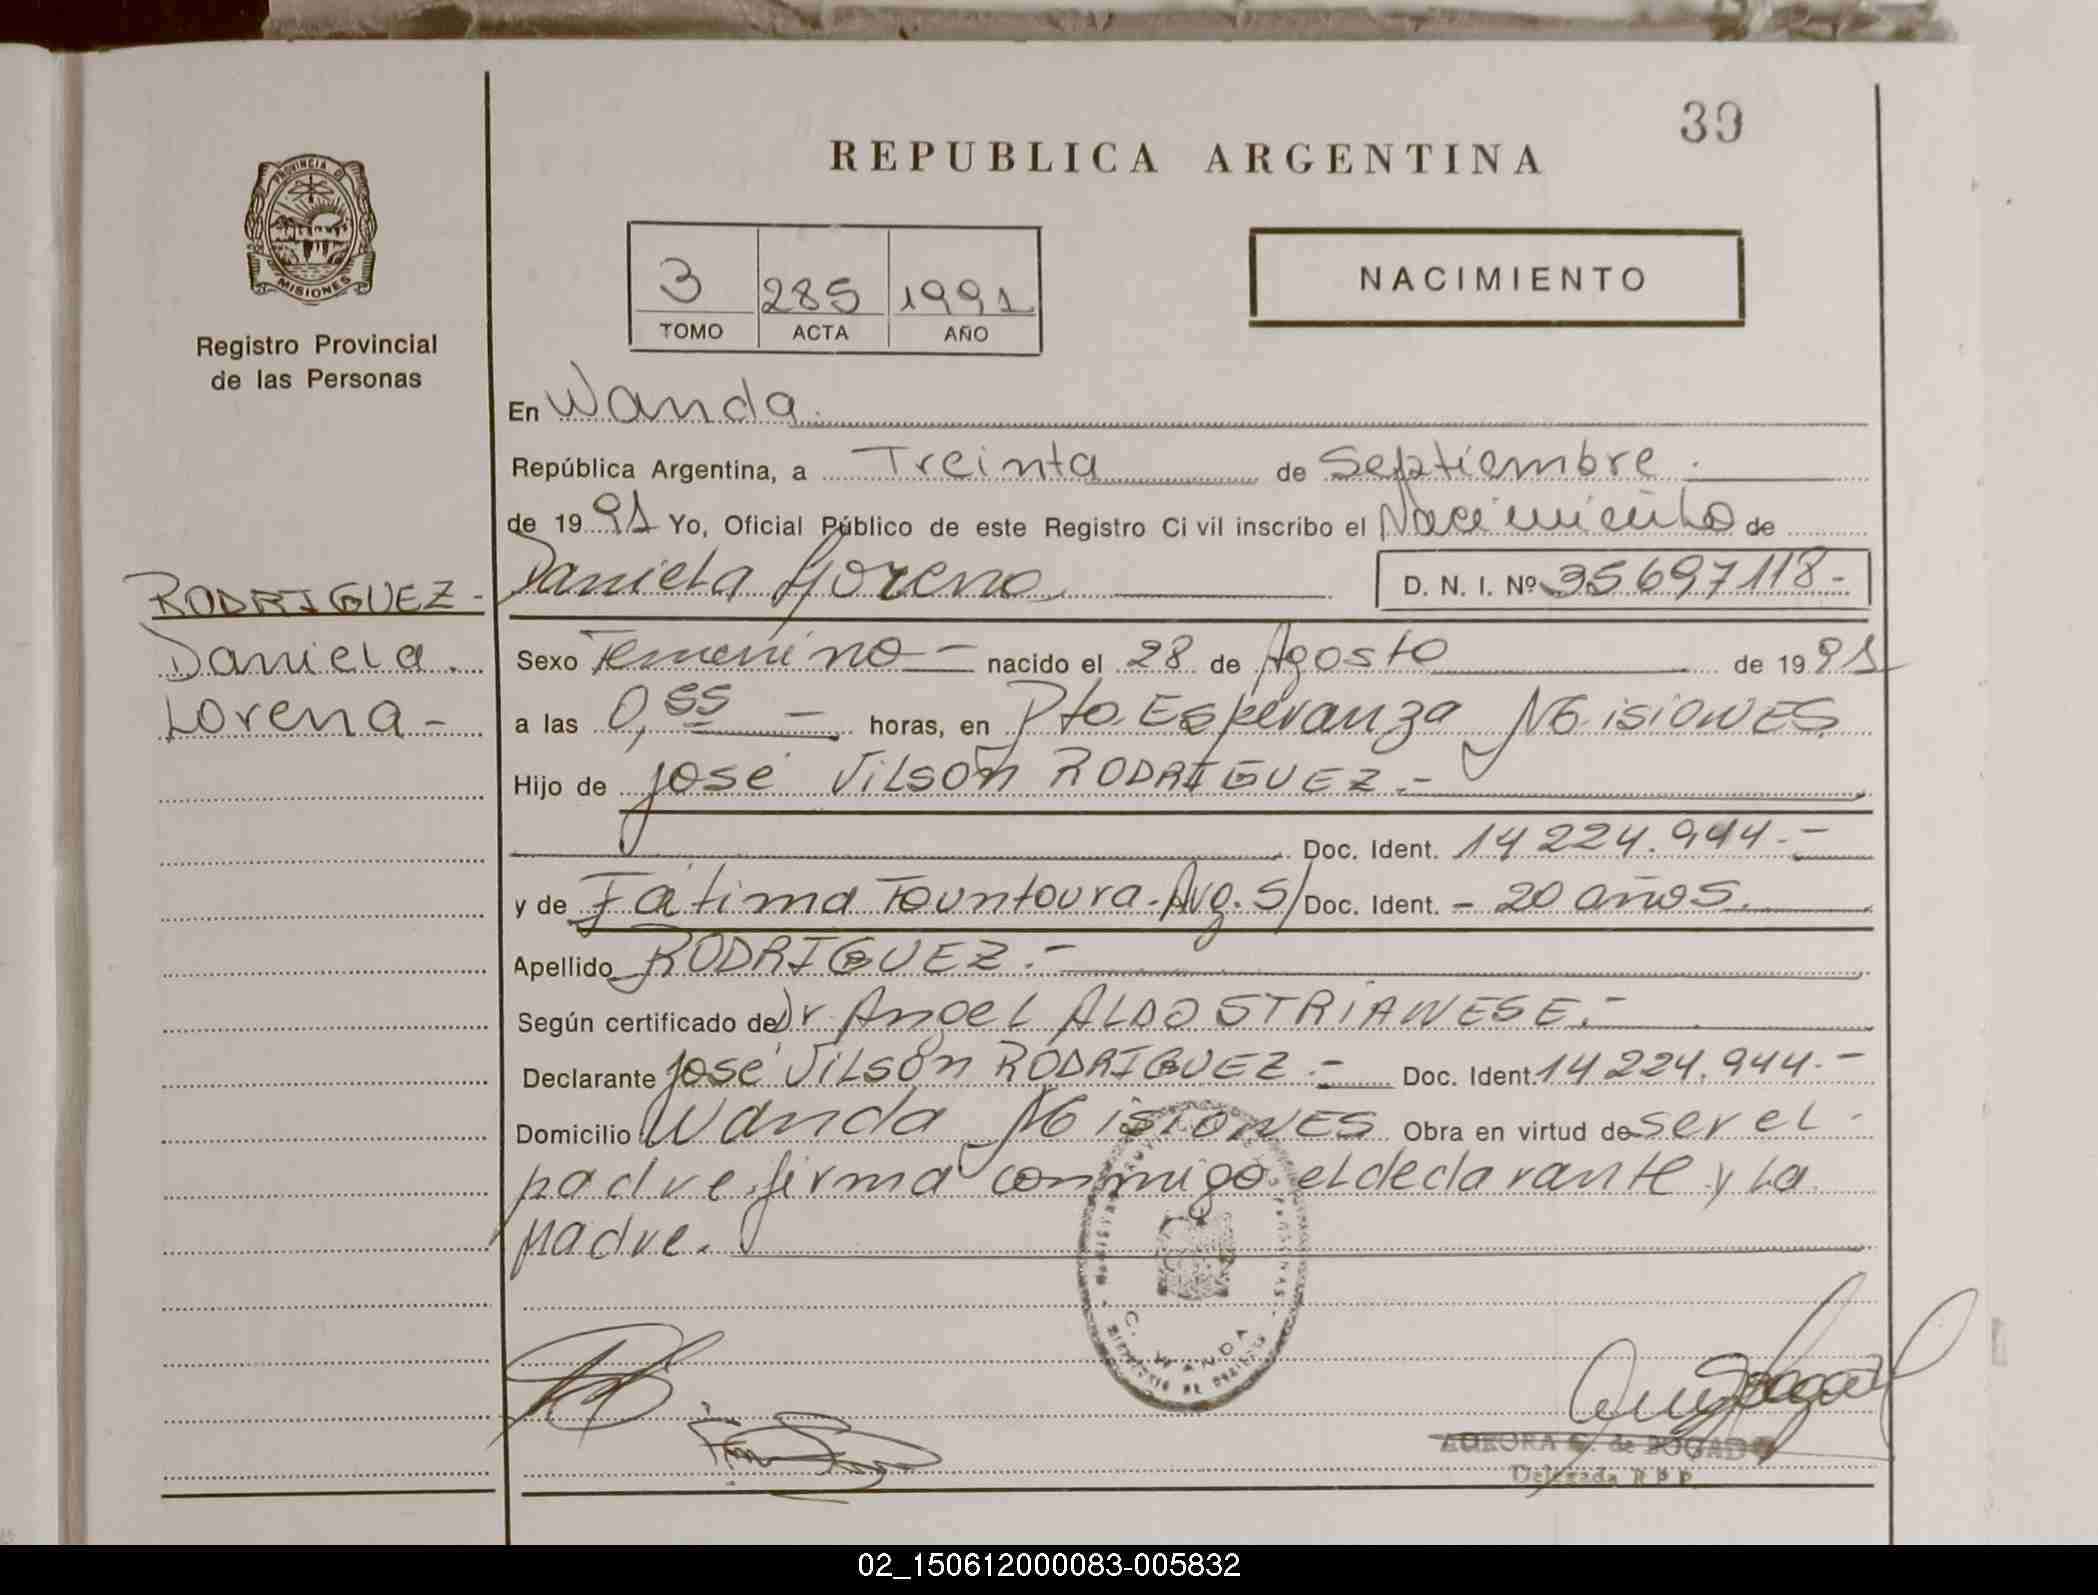 39
REPUBLICA ARGENTINA
PROVINCIA DE
MISIONES
Registro Provincial
de las Personas
3 285 1991
TOMO ACTA AÑO
NACIMIENTO
En Wanda.
República Argentina, a Treinta de Septiembre.
de 1991 Yo, Oficial Público de este Registro Civil inscribo el Nacimiento de
Daniela Lorena D. N. I. Nº 35697118.-
RODRIGUEZ.-
Daniela.
Lorena-
Sexo Femenino- nacido el 28 de Agosto de 1991
a las 0,55 - horas, en Pto. Esperanza Misiones
Hijo de José Vilson RODRIGUEZ.-
Doc. Ident. 14224.944.-
y de Fátima Fountoura. Arg. S/ Doc. Ident. - 20 años.
Apellido RODRIGUEZ.-
Según certificado de Dr. Angel ALDO STRIANESE.-
Declarante José Vilson RODRIGUEZ.- Doc. Ident. 14224.944.-
Domicilio Wanda Misiones Obra en virtud de ser el
padre firma conmigo el declarante y la
madre.
WANDA
AURORA de BOGADO
Delegada R P P
02_150612000083-005832